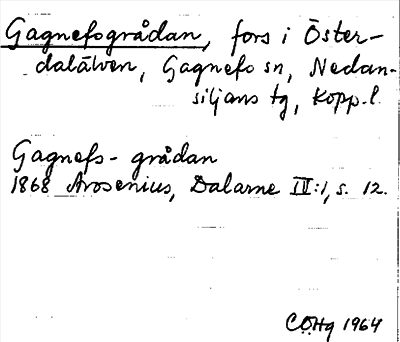 Gagnefsgrådan, fors i Öster-
dalälven, Gagnefs sn, Nedan-
siljans tg, Kopp. l.
Gagnefs-grådan
1868 Arosenius, Dalarne IV:1, s. 12.
CÖHg 1964